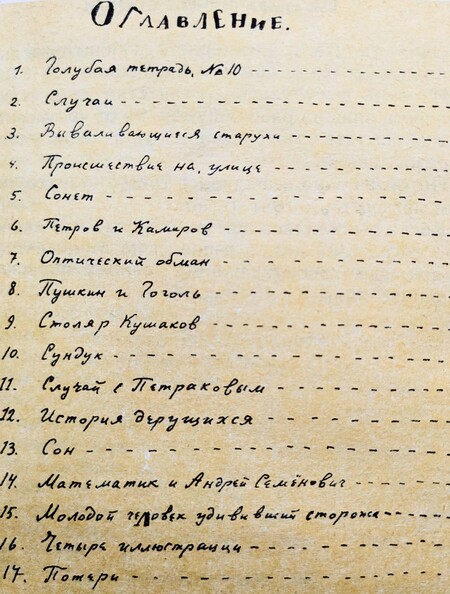 Оглавление.
1. Голубая тетрадь, № 10
2. Случаи
3. Вываливающиеся старухи
4. Происшествие на улице
5. Сонет
6. Петров и Камаров
7. Оптический обман
8. Пушкин и Гоголь
9. Столяр Кушаков
10. Сундук
11. Случай с Петраковым
12. История дерущихся
13. Сон
14. Математик и Андрей Семёнович
15. Молодой человек удививший сторожа
16. Четыре иллюстрации
17. Потери